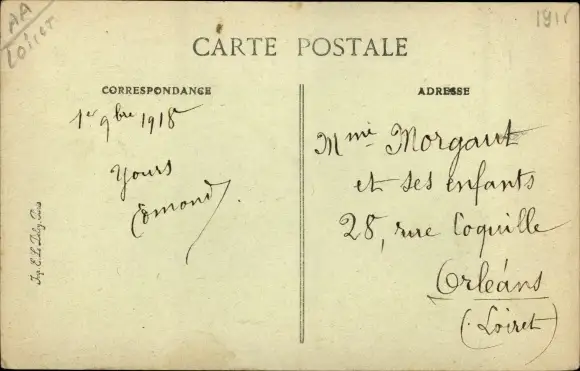 AA
Loiret
191
CARTE POSTALE
CORRESPONDANCE
ADRESSE
1er 9bre 1918
Yours
Edmond.
Mme Morgaut
et ses enfants
28, rue Coquille
Orléans
(Loiret)
Imp. E. Le Deley, Paris